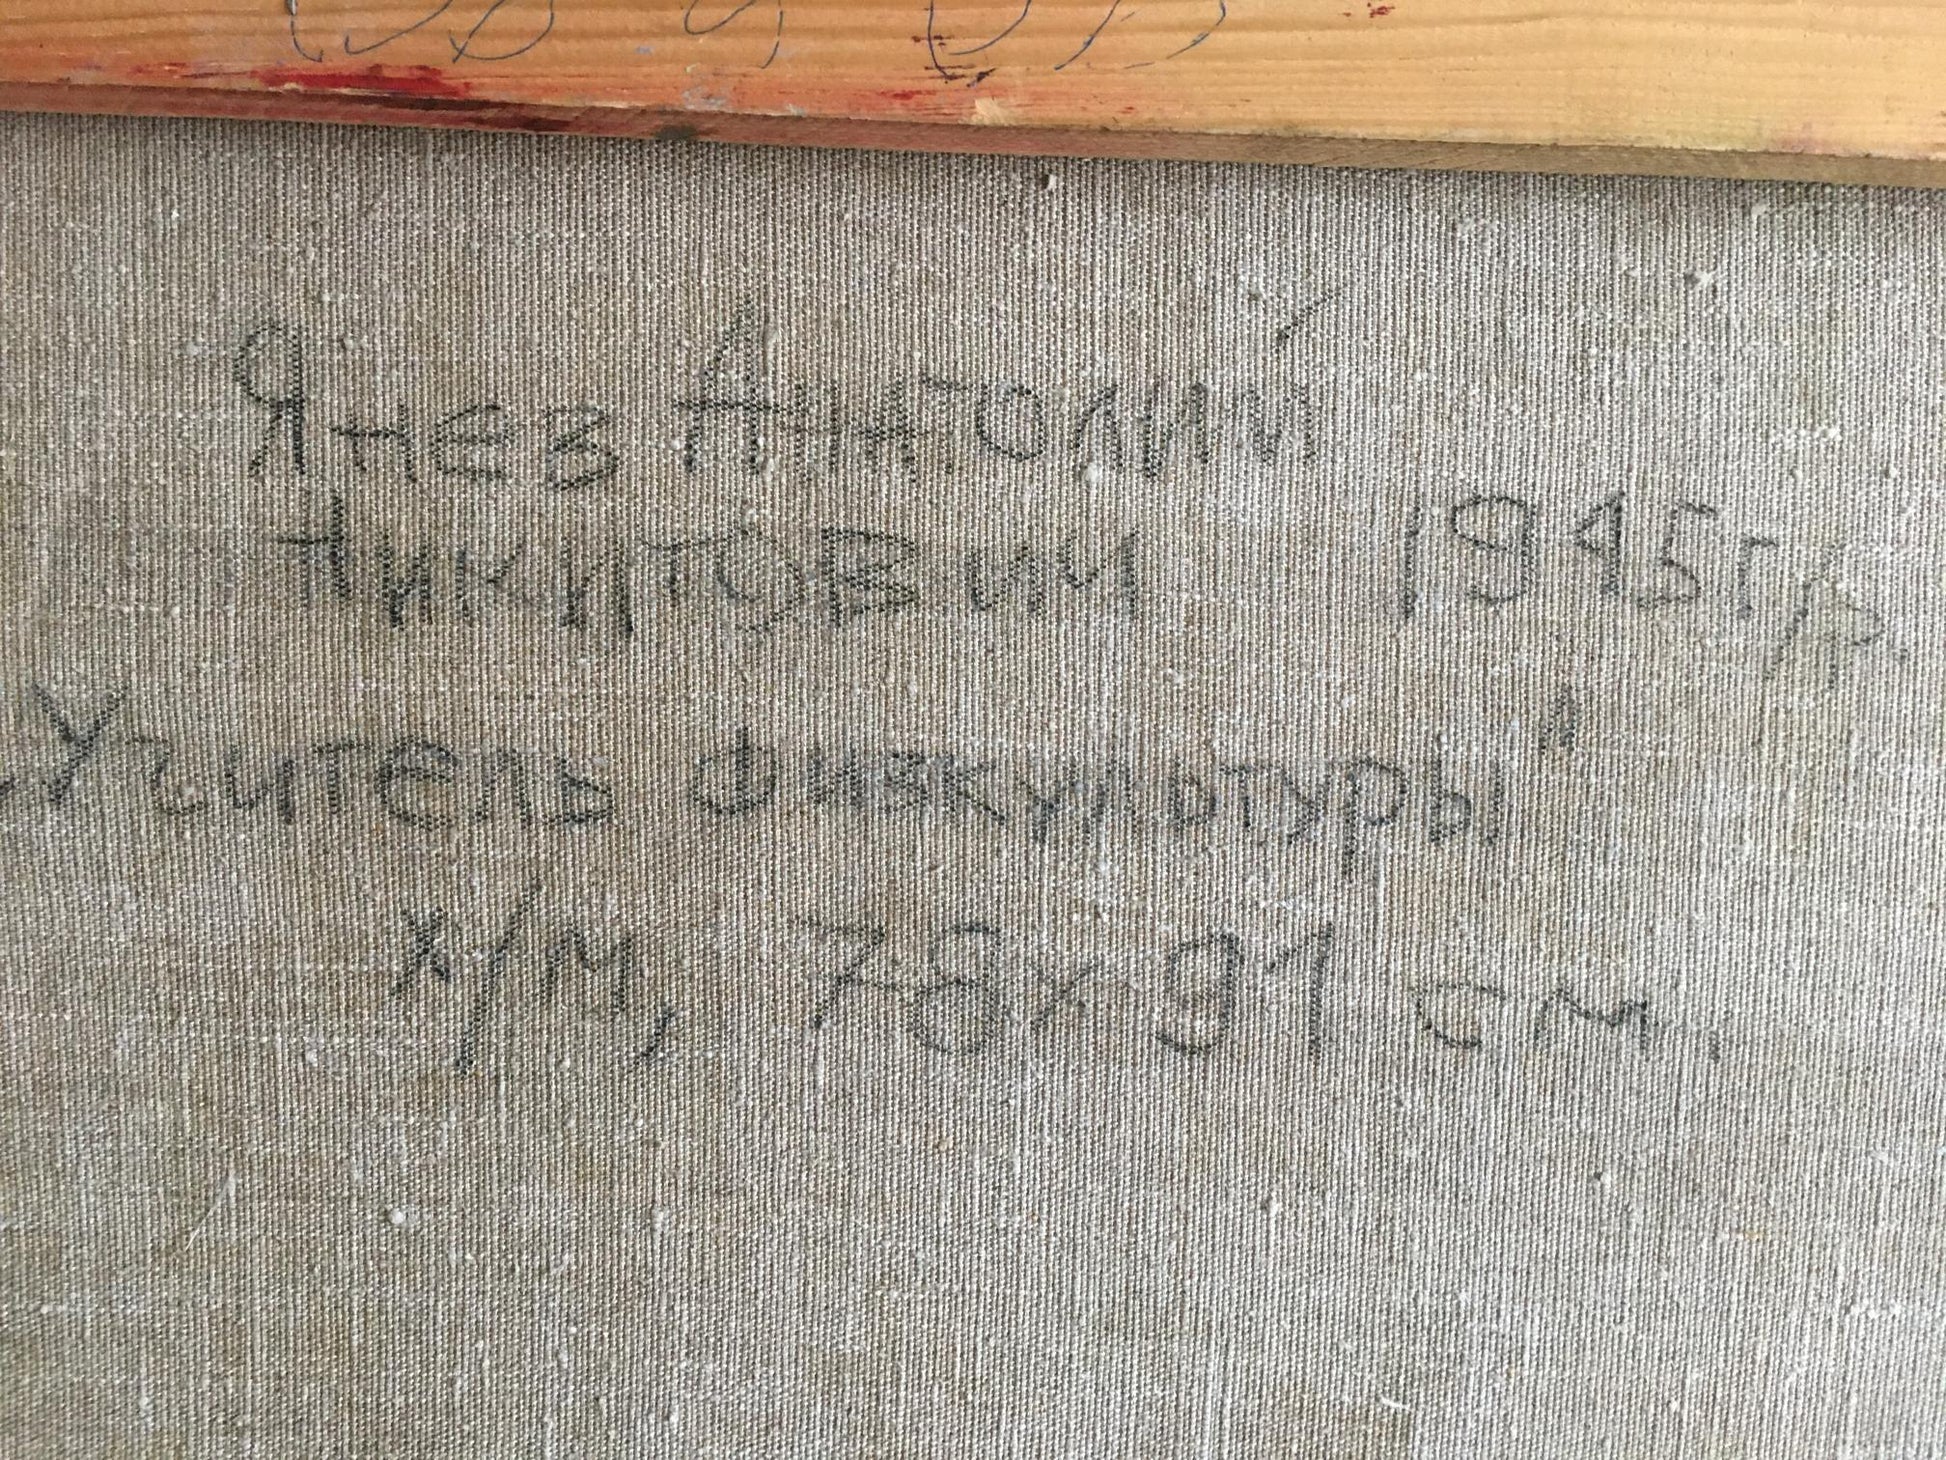 Янев Анатолий
Никитович 1945г/р.
„Учитель физкультуры"
х/м, 78х91 см.